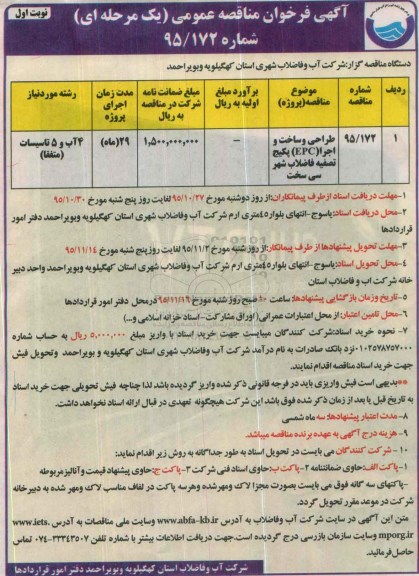 آگهی فرخوان مناقصه عمومی (یک مرحله ای)
نوبت اول
شماره ۹۵/۱۷۲
دستگاه مناقصه گزار: شرکت آب وفاضلاب شهری استان کهگیلویه وبویراحمد
ردیف شماره مناقصه موضوع مناقصه(پروژه) برآورد مبلغ اولیه به ریال مبلغ ضمانت نامه شرکت در مناقصه به ریال مدت زمان اجرای پروژه رشته موردنیاز
۱ ۹۵/۱۷۲ طراحی وساخت و اجرا(EPC) پکیج تصفیه فاضلاب شهر سی سخت – ۱,۵۰۰,۰۰۰,۰۰۰ ۲۹(ماه) ۴آب و ۵ تاسیسات (متفقا)
۱-مهلت دریافت اسناد ازطرف پیمانکاران:از روز دوشنبه مورخ ۹۵/۱۰/۲۷ لغایت روز پنج شنبه مورخ ۹۵/۱۰/۳۰
۲-محل دریافت اسناد:یاسوج-انتهای بلوار۴۵متری ارم شرکت آب وفاضلاب شهری استان کهگیلویه وبویراحمد دفتر امور
قراردادها
۳-مهلت تحویل پیشنهادها از طرف پیمانکار:از روز شنبه مورخ ۹۵/۱۱/۲ لغایت روز پنج شنبه مورخ ۹۵/۱۱/۱۴
۴-محل تحویل اسناد:یاسوج-انتهای بلوار۴۵متری ارم شرکت آب وفاضلاب شهری استان کهگیلویه وبویراحمد واحد دبیر
خانه شرکت آب و فاضلاب استان
۵-تاریخ وزمان بازگشایی پیشنهادها: ساعت ۱۰ صبح روز شنبه مورخ ۹۵/۱۱/۱۶ درمحل دفتر امور قراردادها
۶-محل تامین اعتبار:از محل اعتبارات عمرانی (اوراق مشارکت-اسناد خزانه اسلامی و...)
۷- نحوه خرید اسناد:شرکت کنندگان میبایست جهت خرید اسناد با واریز مبلغ ۵,۰۰۰,۰۰۰ ریال به حساب شماره
۰۱۰۲۵۷۸۷۵۷۰۰۰نزد بانک صادرات به نام درآمد شرکت آب وفاضلاب شهری استان کهگیلویه و بویراحمد وتحویل فیش
جهت خرید اسناد مناقصه اقدام نمایند.
**بدیهی است فیش واریزی باید در فرجه قانونی ذکر شده واریز گردیده باشد لذا چناچه فیش تحویلی جهت خرید اسناد
به تاریخ قبل یا بعد از زمان ذکر شده فوق باشد این شرکت هیچگونه تعهدی در قبال ارائه اسناد نخواهد داشت.
۸-مدت اعتبار پیشنهادها: سه ماه شمسی
۹- هزینه درج آگهی به عهده برنده مناقصه میباشد.
۱۰- شرکت کنندگان می بایست در تحویل اسناد به طور جداگانه به روش زیر اقدام نمایند:
۱-پاکت الف:حاوی ضمانتنامه ۲-پاکت ب:حاوی اسناد فنی شرکت ۳-پاکت ج:حاوی پیشنهاد قیمت وآنالیزمربوطه
-پاکتهای سه گانه فوق می بایست بصورت مجزا لاک ومهرشده وهرسه پاکت در لفاف مناسب لاک ومهر شده به دبیرخانه
شرکت در موعد مقرر تحویل گردد.
متن این آگهی در سایت شرکت آب وفاضلاب به آدرس www.abfa-kb.ir وسایت ملی مناقصات به آدرس www.iets.
mporg.ir وسایت سازمان بازرسی درج گردیده است.جهت دریافت اطلاعات بیشتر با شماره تلفن ۰۷۴-۳۳۳۴۳۵۰۷ تماس
حاصل فرمائید.
شرکت آب وفاضلاب شهری استان کهگیلویه وبویراحمد دفتر امور قراردادها